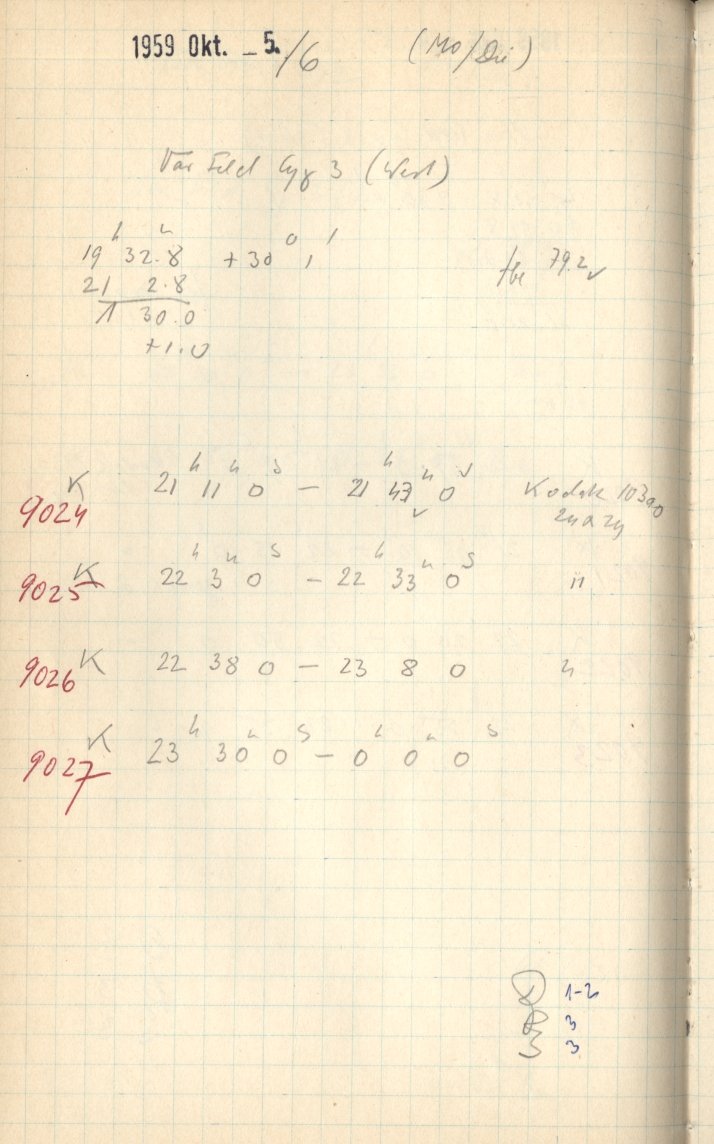 1959 Okt. - 5./6 (Mo/Di)
Var Feld Cyg 3 (West)
19h 32.8m +30° 1' 79.2
21 2.8
1 30.0
+1.0
9024 K 21h 11m 0s — 21h 47m 0s Kodak 103aO
9025 K 22h 3m 0s — 22h 33m 0s "
9026 K 22 38 0 — 23 8 0 "
9027 K 23h 30m 0s — 0h 0m 0s
1-2
3
3